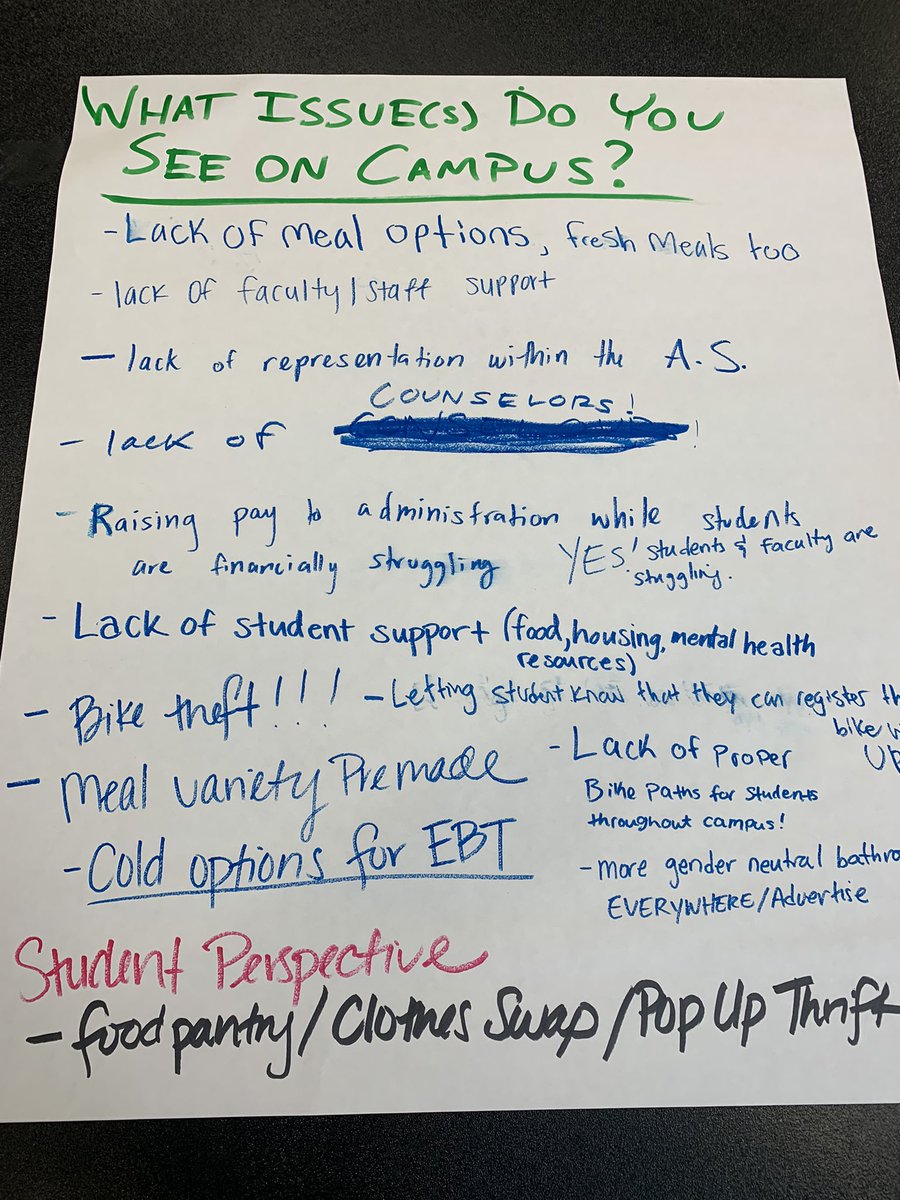 WHAT ISSUE(S) DO YOU
SEE ON CAMPUS?
- Lack of meal options, fresh Meals too
- lack of faculty/staff support
- lack of representation within the A.S.
COUNSELORS!
- lack of !
- Raising pay to administration while students
are financially struggling
YES! students & faculty are
stuggling.
- Lack of student support (food, housing, mental health
resources)
- Bike theft!!!
- Letting student know that they can register
bike
- Meal variety Premade
- Cold options for EBT
- Lack of proper
Bike Paths for students
throughout campus!
- more gender neutral bathro
EVERYWHERE/Advertise
Student Perspective
- food pantry/Clothes Swap/Pop Up Thrift